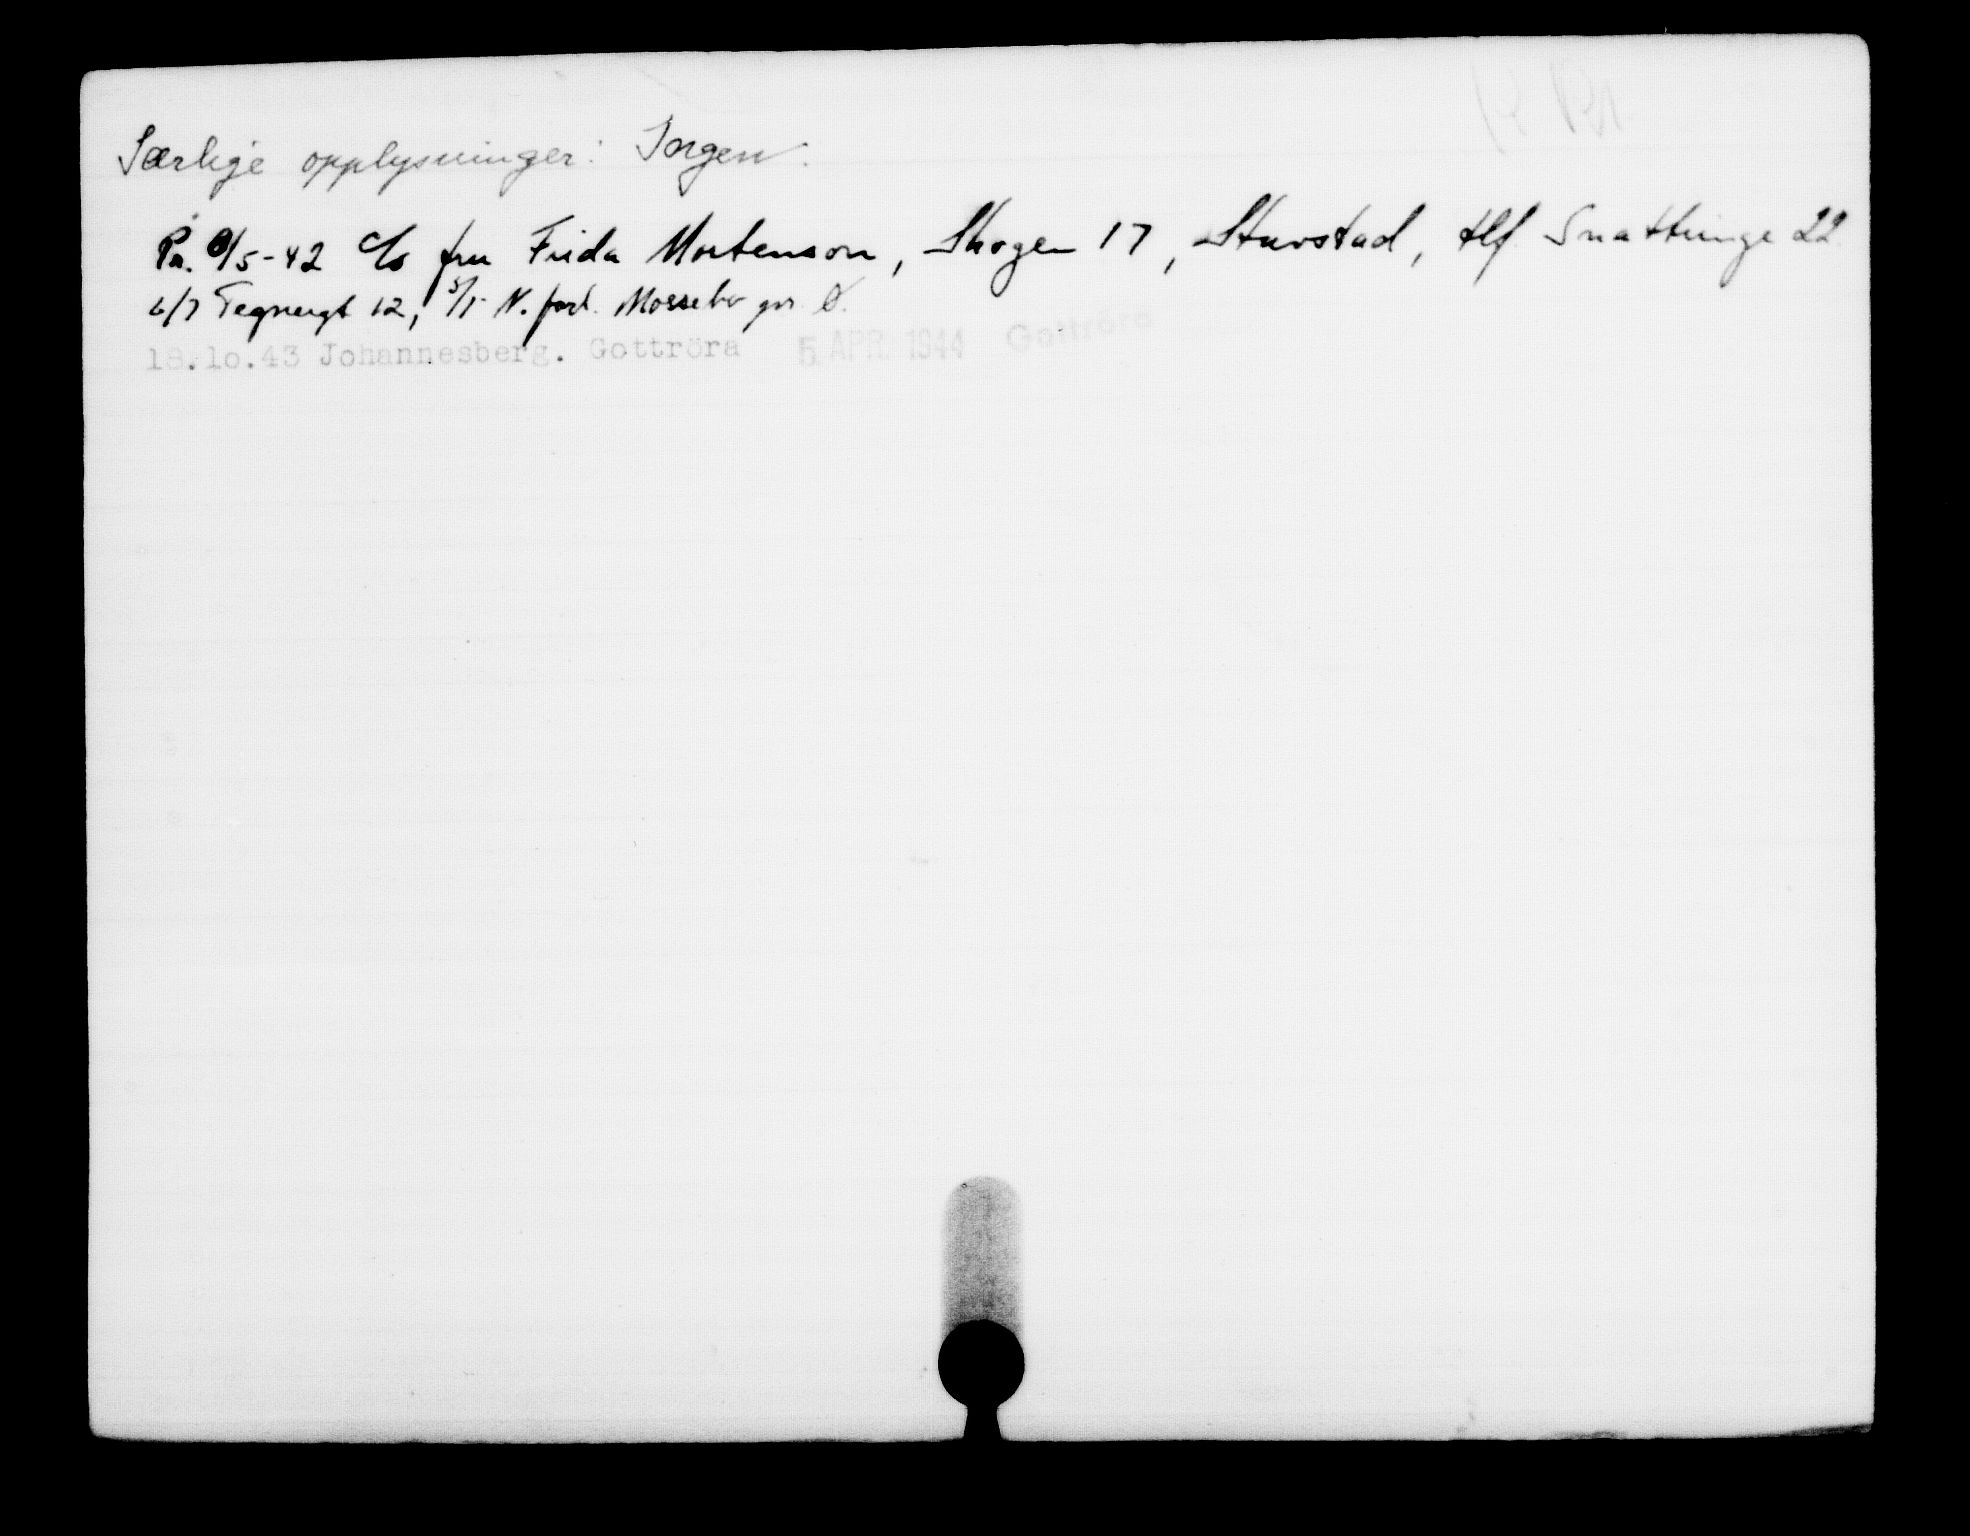 Særlige opplysninger: Ingen.
Pr. 8/5-42 c/o fru Frida Mortenson, Skogen 17, Stavstad, tlf. Snattringe 22.
6/7 Tegnergt 12, 5/1 N. ford. Mossebo gn.
18.10.43 Johannesberg. Gottröra 5 APR. 1944 Gottröra